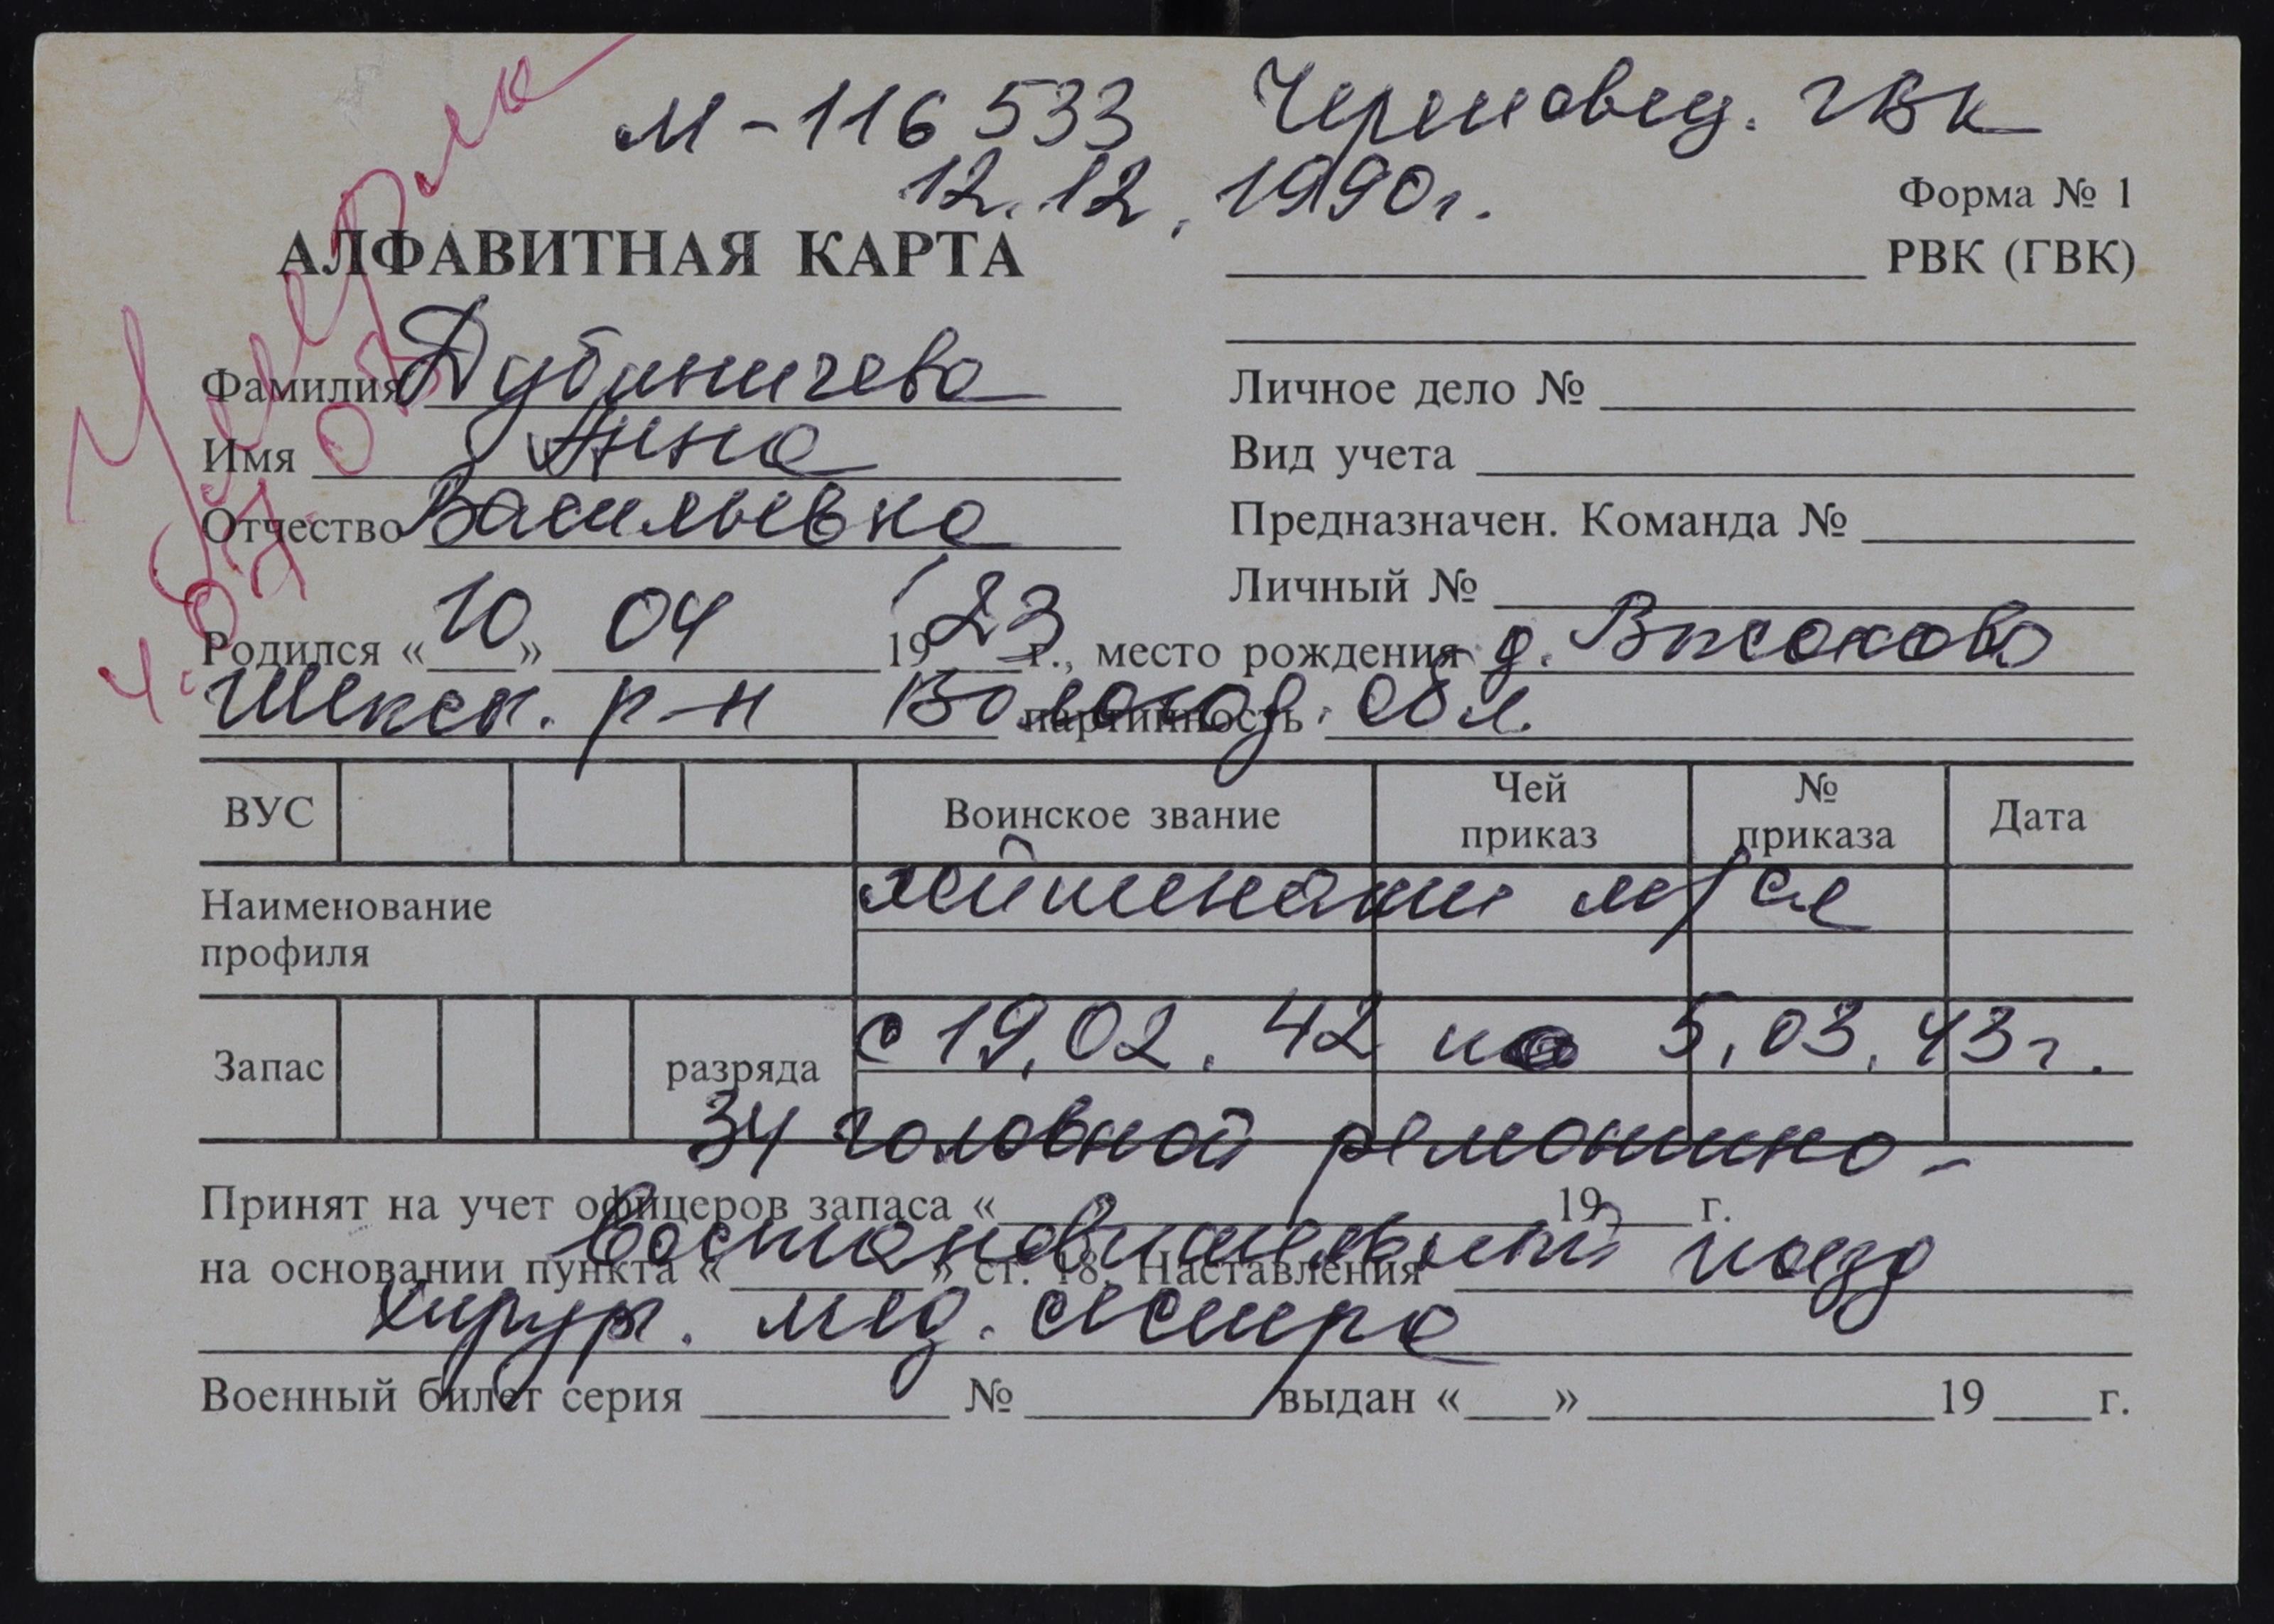 М-116533 Череповец. ГВК
12.12.1990г.
Форма № 1
АЛФАВИТНАЯ КАРТА
РВК (ГВК)
Умерла
Фамилия Дубиничева
Личное дело №
Имя Анна
Вид учета
Отчество Васильевна
Предназначен. Команда №
Личный №
Родился «10» 04 1923 г., место рождения д. Высоково
Шексн. р-н Вологод. обл.
партийность
ВУС Воинское звание Чей приказ № приказа Дата
Наименование профиля
лейтенант м/сл
Запас разряда
с 19.02.42 по 5.03.43г.
34 головной ремонтно-
Принят на учет офицеров запаса « » 19 г.
востановительный поезд
на основании пункта « » ст. 18. Наставления
хирург. мед. сестра
Военный билет серия № выдан « » 19 г.